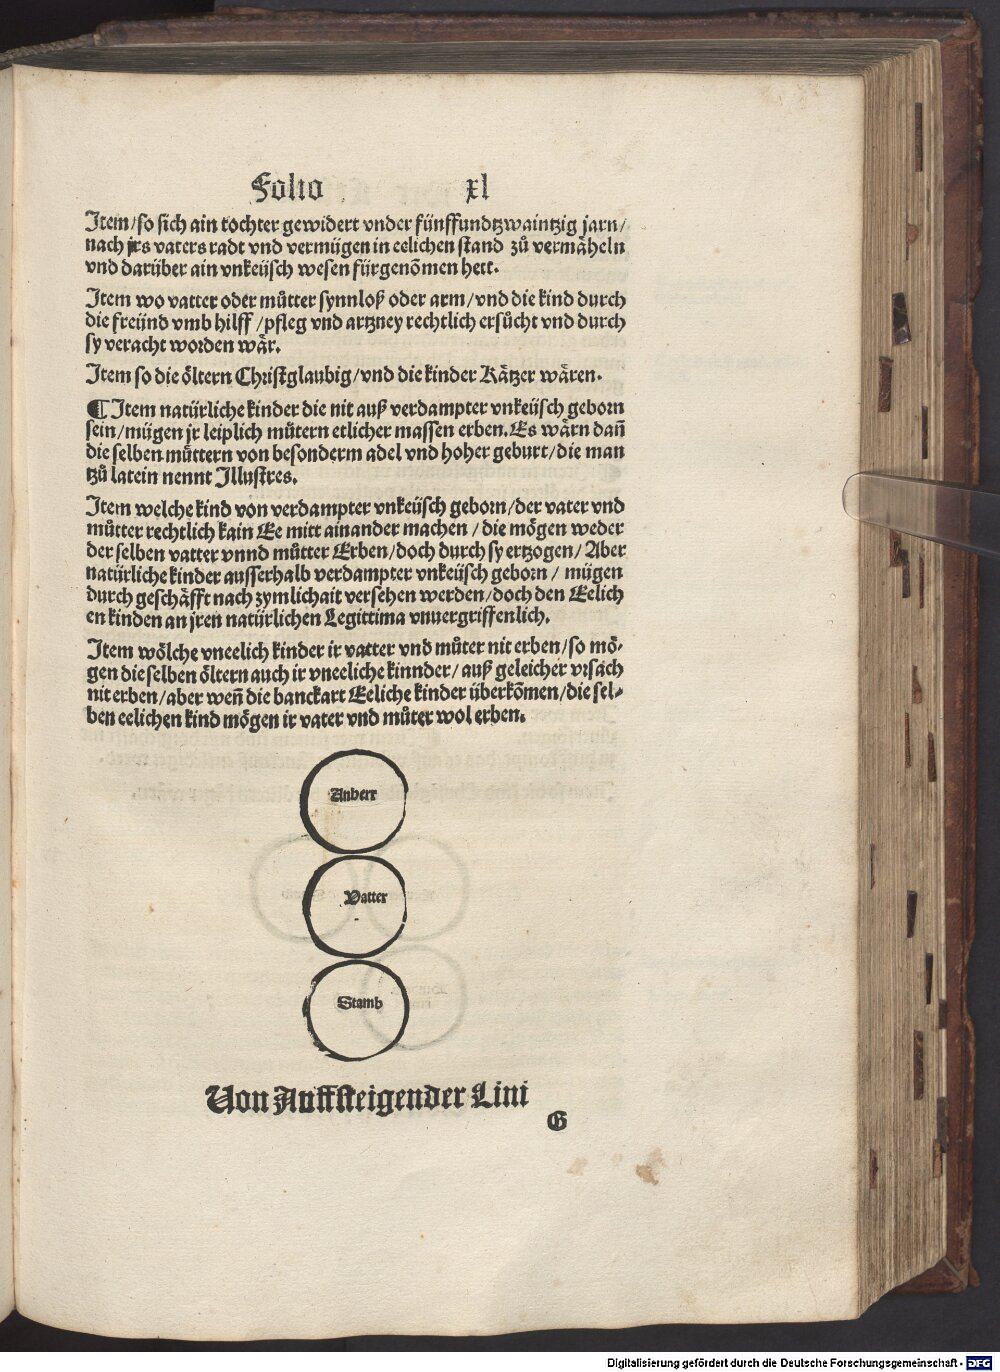 Folio xl
Item/so sich ain tochter gewidert vnder fünffundtzwaintzig jarn/
nach jrs vaters radt vnd vermügen in eelichen stand zů vermäheln
vnd darüber ain vnkeüsch wesen fürgenōmen hett.
Item wo vatter oder můtter synnloß oder arm/vnd die kind durch
die freünd vmb hilff/pfleg vnd artzney rechtlich ersůcht vnd durch
sy veracht worden wär.
Item so die öltern Christglaubig/vnd die kinder Kätzer wären.
¶ Item natürliche kinder die nit auß verdampter vnkeüsch geborn
sein/mügen jr leiplich můtern etlicher massen erben. Es wärn dañ
die selben můttern von besonderm adel vnd hoher geburt/die man
tzů latein nennt Illustres.
Item welche kind von verdampter vnkeüsch geborn/der vater vnd
můtter rechtlich kain Ee mitt ainander machen/die mögen weder
der selben vatter vnnd můtter Erben/doch durch sy ertzogen/Aber
natürliche kinder ausserhalb verdampter vnkeüsch geborn/mügen
durch geschäfft nach zymlichait versehen werden/doch den Eelich
en kinden an jren natürlichen Legittima vnuergriffenlich.
Item wölche vneelich kinder ir vatter vnd můter nit erben/so mö-
gen die selben öltern auch ir vneeliche kinnder/auß geleicher vrsach
nit erben/aber weñ die banckart Eeliche kinder überkōmen/die sel-
ben eelichen kind mögen ir vater vnd můter wol erben.
Anherr
Vatter
Stamb
Von Auffsteigender Lini
G
Digitalisierung gefördert durch die Deutsche Forschungsgemeinschaft - DFG